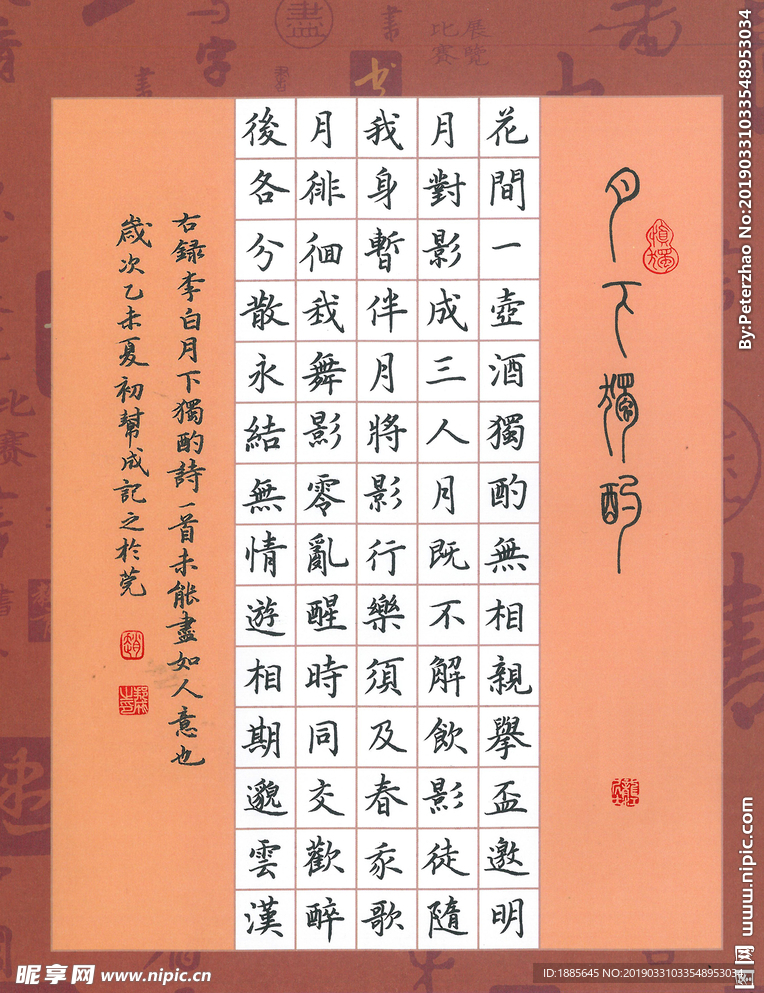 月下獨酌
慎獨
花間一壺酒獨酌無相親舉盃邀明
月對影成三人月既不解飲影徒隨
我身暫伴月將影行樂須及春我歌
月徘徊我舞影零亂醒時同交歡醉
後各分散永結無情遊相期邈雲漢
右錄李白月下獨酌詩一首未能盡如人意也
歲次乙未夏初幫成記之於莞
趙
By:Peterzhao No:20190331033548953034
昵享网 www.nipic.com
昵享网 www.nipic.cn
ID:1885645 NO:20190331033548953034